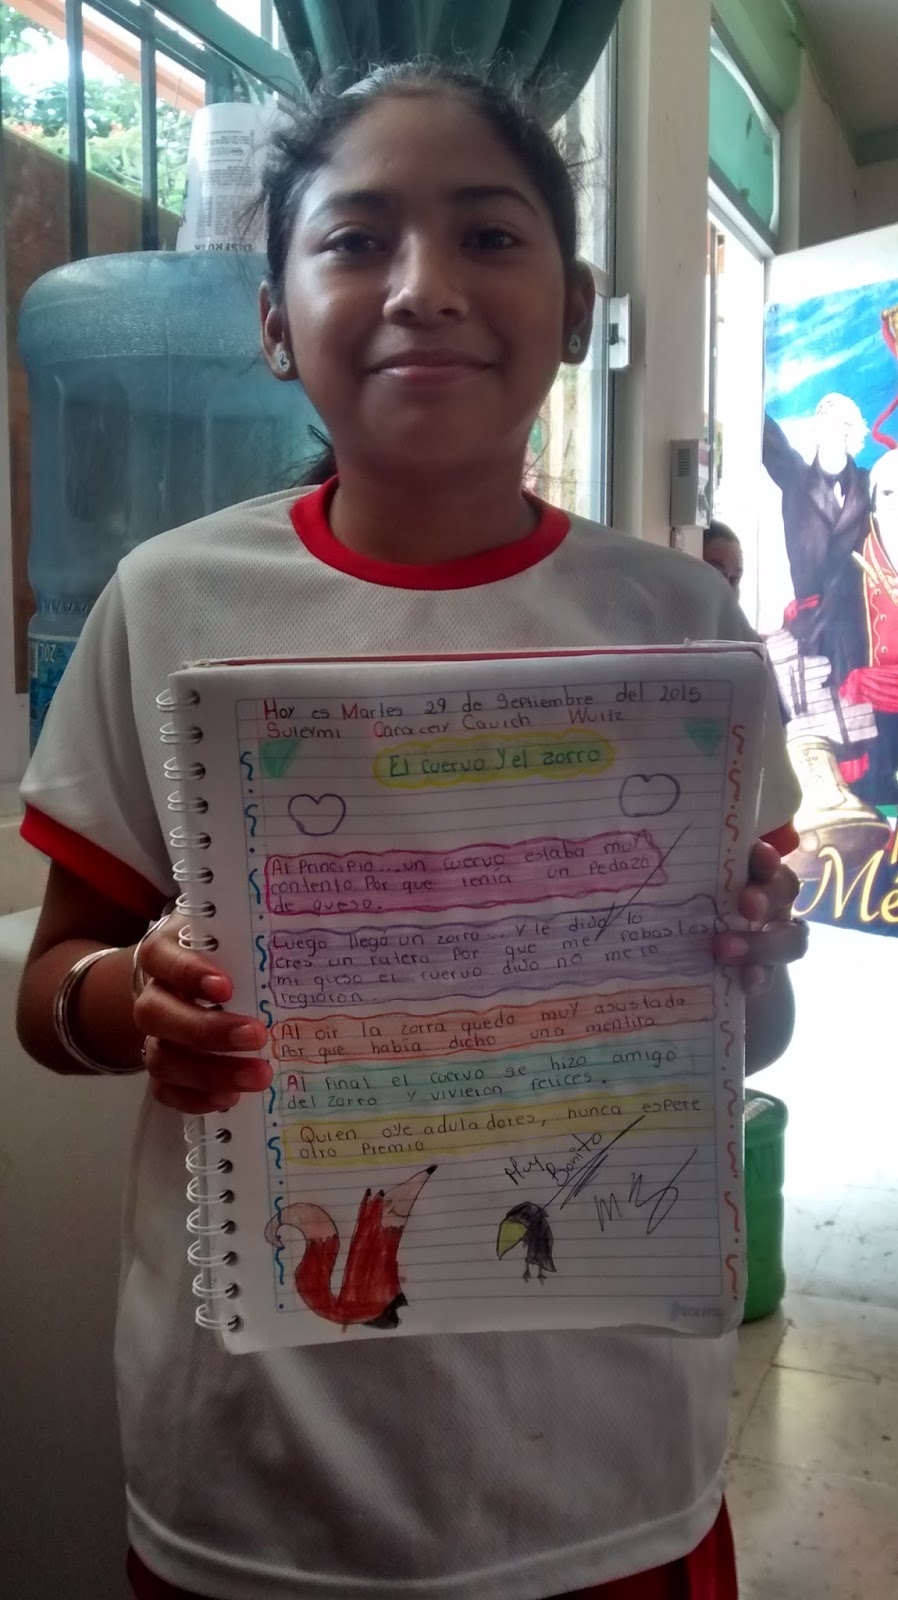 Hoy es Martes 29 de Septiembre del 2015
El cuervo y el zorro
Al Principio... un cuervo estaba muy
contento Por que tenía un Pedazo
de queso.
Luego llego un zorro... Y le dijo lo
eres un ratero Por que me robastes
mi queso el cuervo dijo no me lo
regiaron.
Al oir la zorra quedo muy asustada
Por que había dicho una mentira
Al final el cuervo se hizo amigo
del zorro y vivieron felices.
Quien oye aduladores, nunca espere
otro Premio
Muy
Bonito
Mé